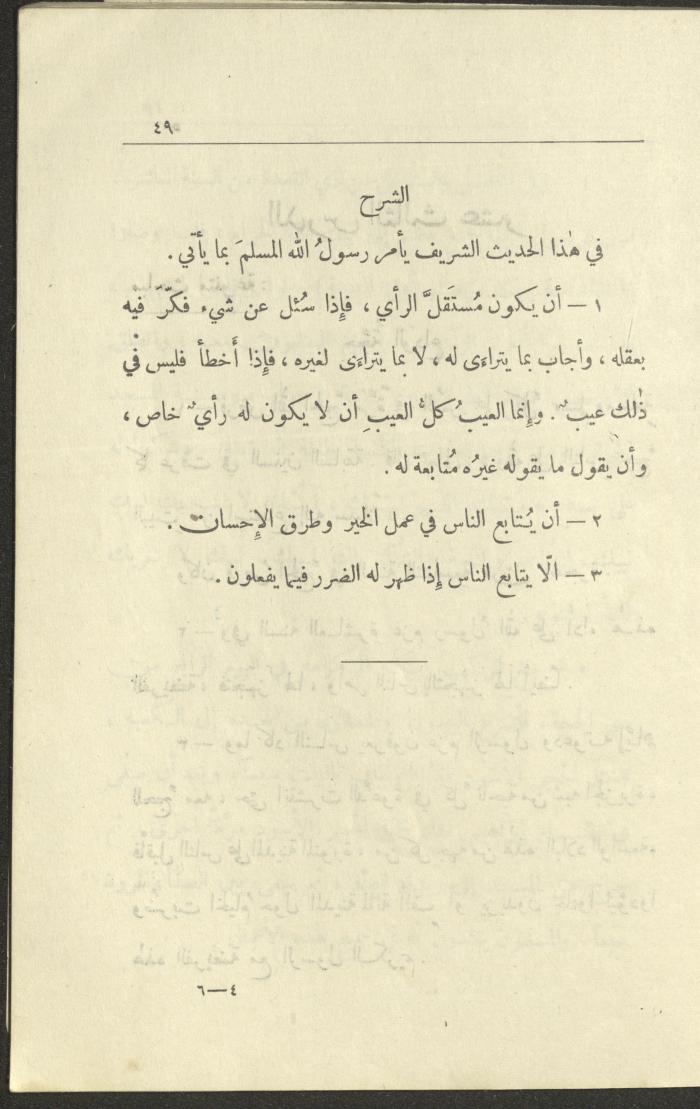 ٤٩
الشرح
في هٰذا الحديث الشريف يأمر رسولُ الله المسلمَ بما يأتي .
١ — أن يكون مُستَقلَّ الرأي ، فإِذا سُئل عن شيء فكّرَ فيه
بعقله ، وأجاب بما يتراءى له ، لا بما يتراءى لغيره ، فإِذا أخطأ فليس في
ذٰلك عيبٌ . وإنما العيبُ كلُّ العيبِ أن لا يكون له رأيٌ خاص ،
وأن يقول ما يقوله غيرُه مُتابعة له .
٢ — أن يُتابع الناس في عمل الخير وطرق الإِحسان .
٣ — ألّا يتابع الناس إِذا ظهر له الضرر فيما يفعلون .
٤—٦